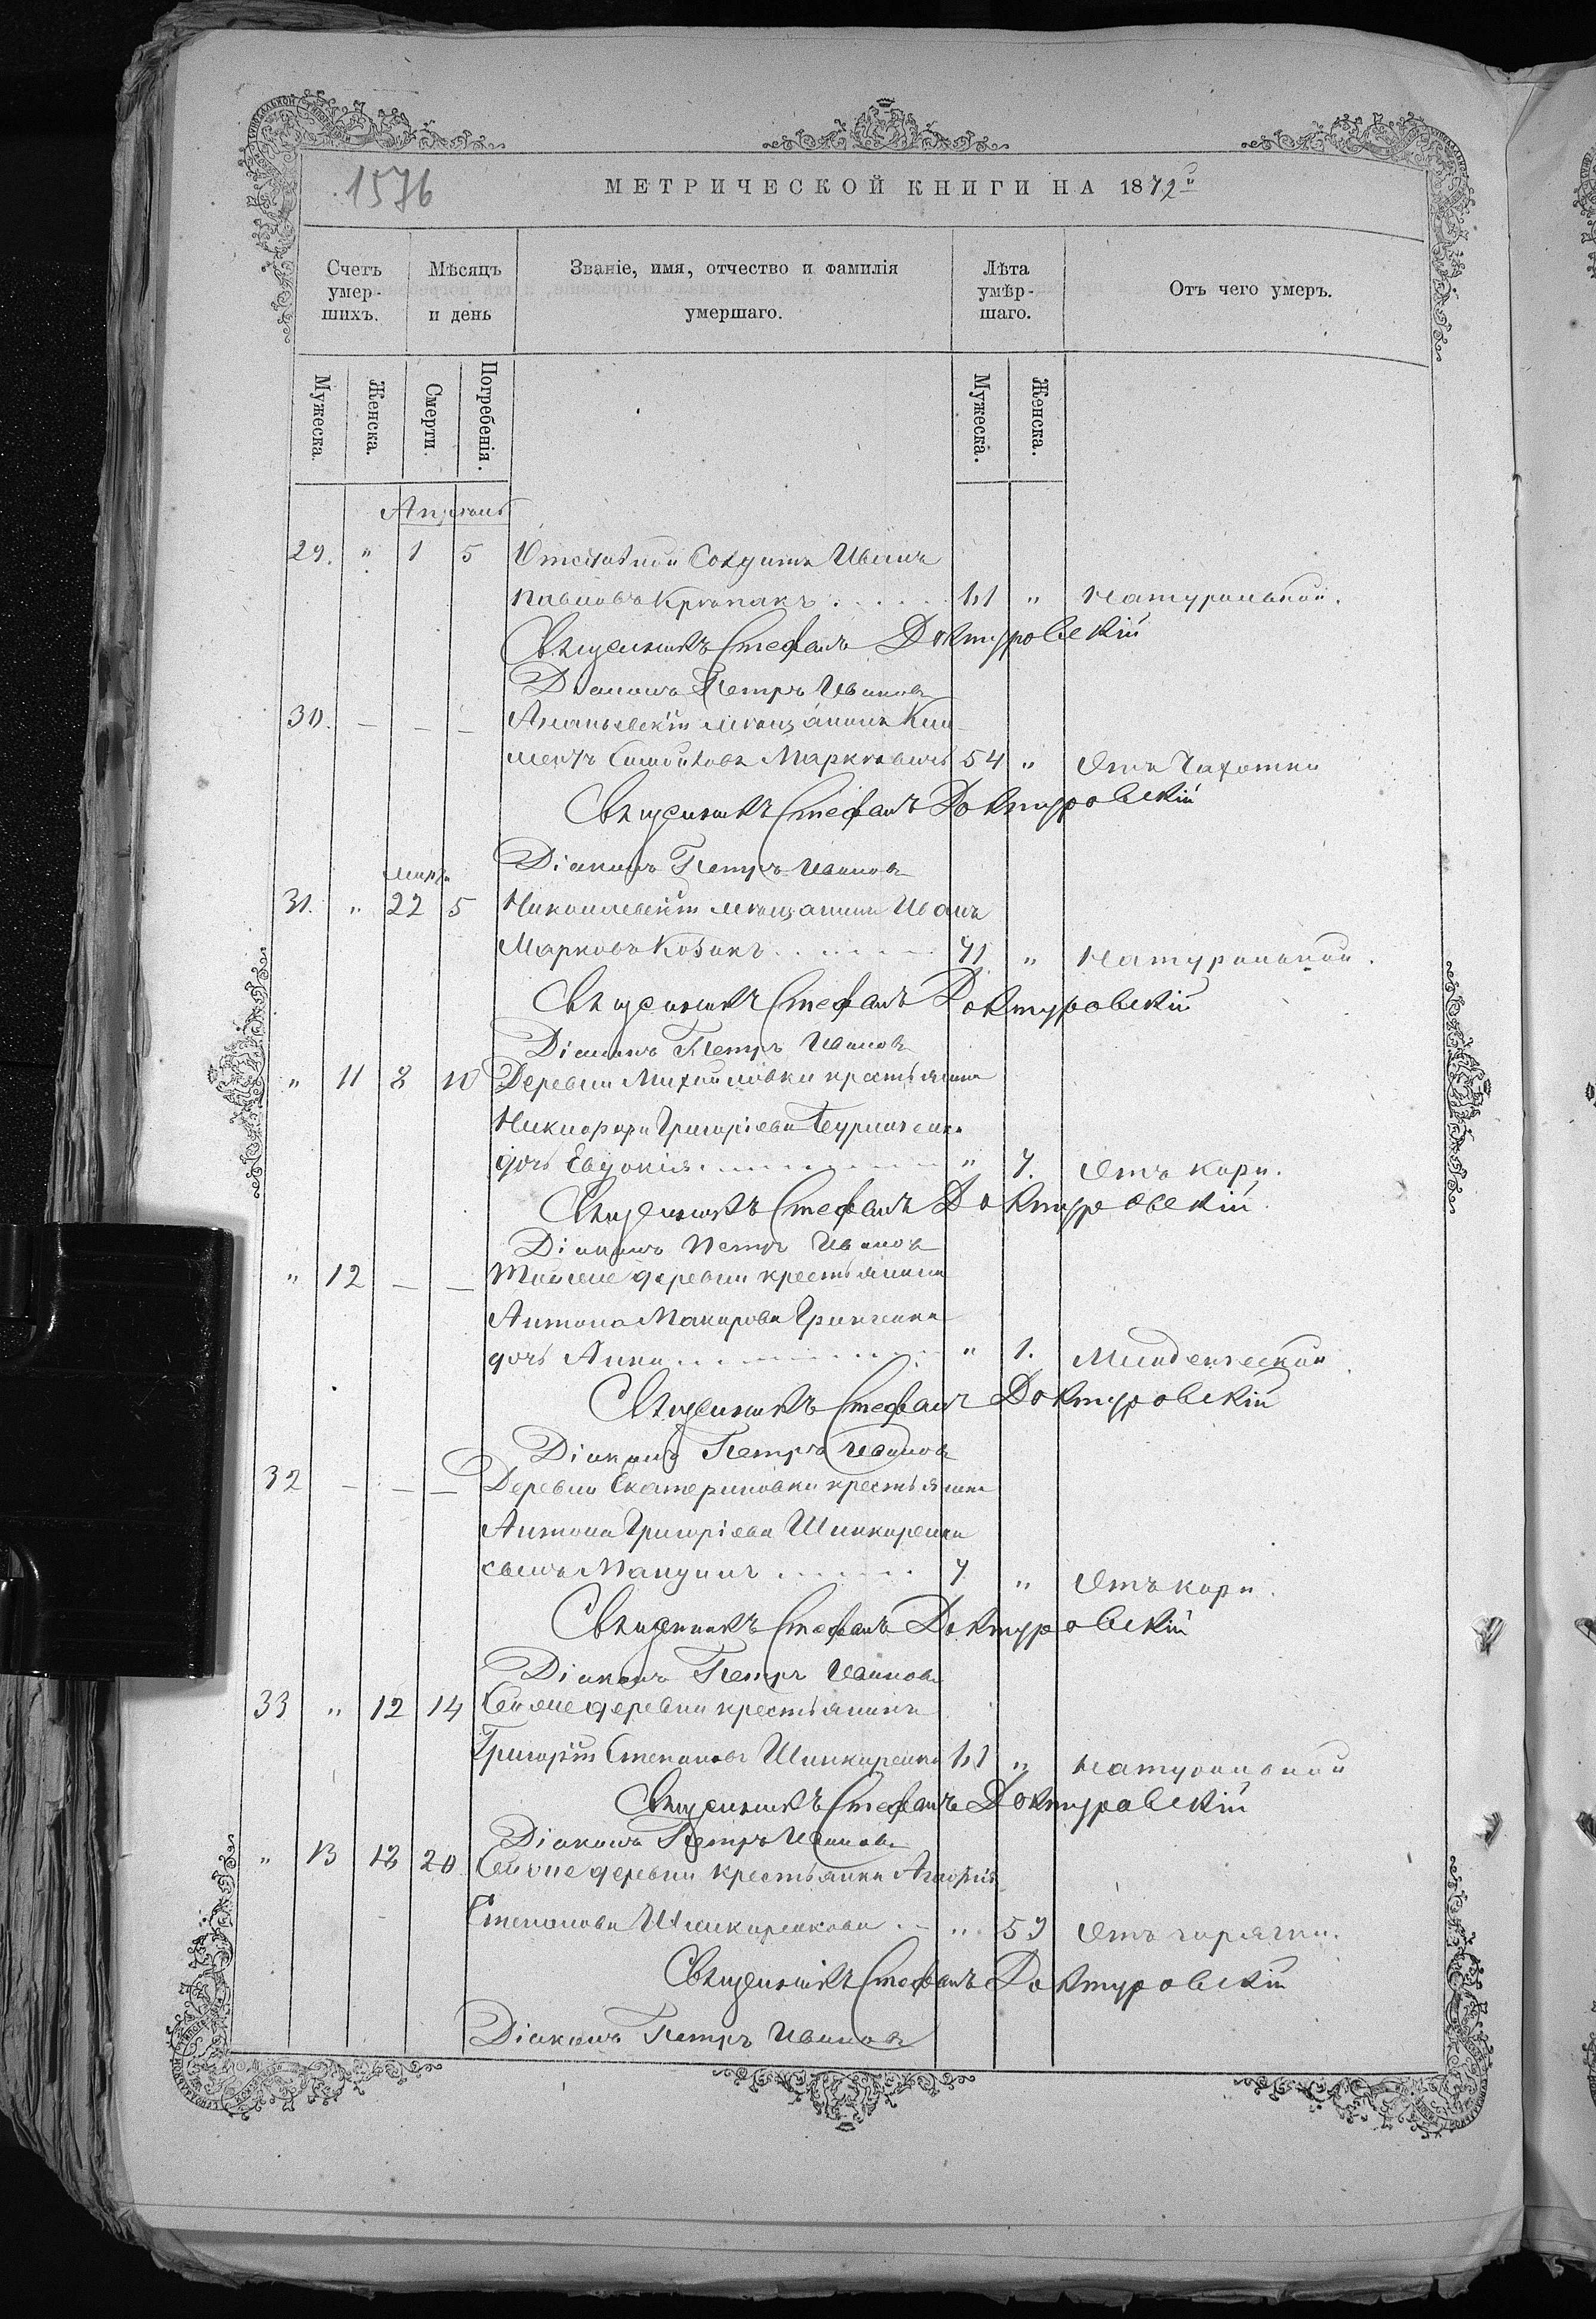 1576
МЕТРИЧЕСКОЙ КНИГИ НА 1872й
Счетъ умер-шихъ.
Мѣсяцъ и день
Званіе, имя, отчество и фамилія умершаго.
Лѣта умѣр-шаго.
Отъ чего умеръ.
Мужеска.
Женска.
Смерти.
Погребенія.
Мужеска.
Женска.
Апрель
29. " 1 5 Отставной Солдатъ Иванъ
Павловъ " Натуральной.
Священникъ Стефанъ Доктуровскій
Діаконъ Петръ Ивановъ
30. — — — Ананьевскій мѣщанинъ Кли-
ментъ 54 " Отъ Чахотки
Священникъ Стефанъ Доктуровскій
Діаконъ Петръ Ивановъ
марта
31. " 22 5 Николаевскій мѣщанинъ Иванъ
Марковъ Козакъ 71 " Натуральной.
Священникъ Стефанъ Доктуровскій
Діаконъ Петръ Ивановъ
" 11 8 10 Деревни Михайловки крестьянина
Никифора Григоріева
дочь Евдокія " 7. Отъ кори.
Священникъ Стефанъ Доктуровскій
Діаконъ Петръ Ивановъ
" 12 — — Тойже деревни крестьянина
Антона Макарова Гринченка
дочь Анна " 1. Младенческой
Священникъ Стефанъ Доктуровскій
Діаконъ Петръ Ивановъ
32 — — — Деревни Екатериновки крестьянина
Антона Григоріева Шинкаренка
сынъ 7 " Отъ кори.
Священникъ Стефанъ Доктуровскій
Діаконъ Петръ Ивановъ
33 " 12 14 Сейже деревни крестьянинъ
Григорій Степановъ Шинкаренко " натуральной
Священникъ Стефанъ Доктуровскій
Діаконъ Петръ Ивановъ
" 13 18 20 Сейже деревни крестьянка
Степанова Шинкаренкова " 59 Отъ горячки.
Священникъ Стефанъ Доктуровскій
Діаконъ Петръ Ивановъ